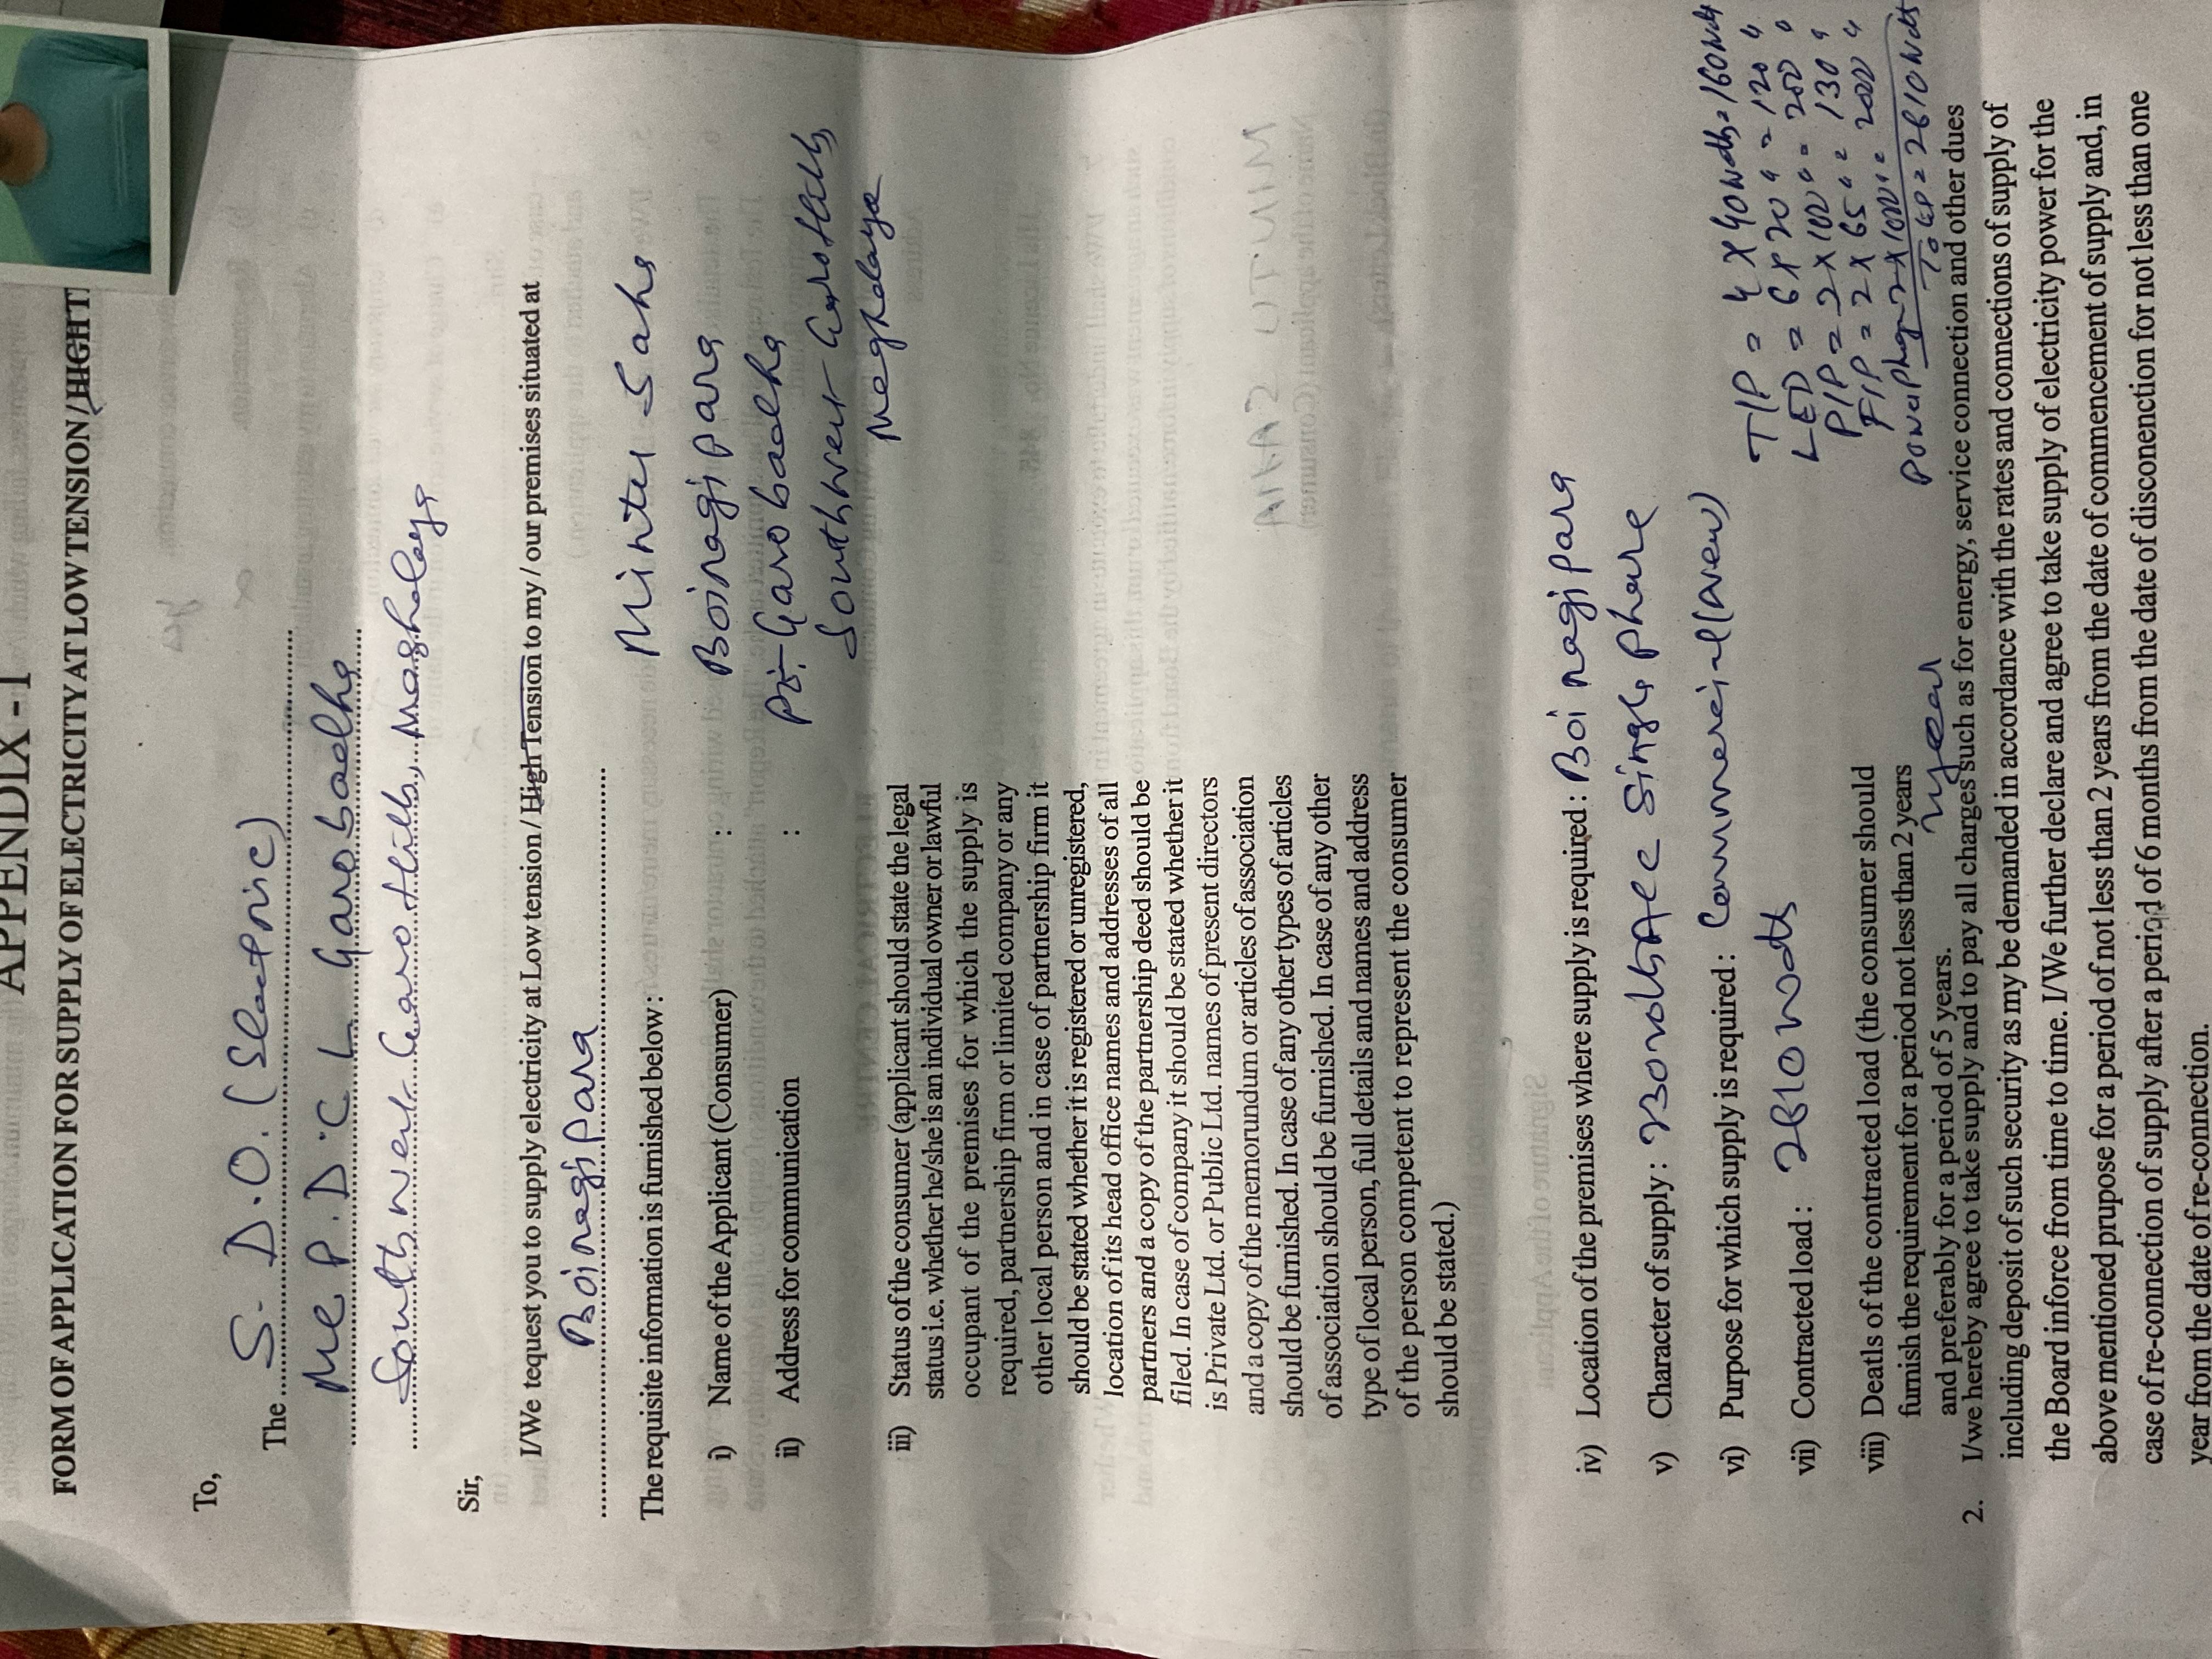 APPENDIX - 1
FORM OF APPLICATION FOR SUPPLY OF ELECTRICITY AT LOW TENSION / HIGH T
To,
The S. D.O. (Electric)
Me P.D.C L Garobadha
South West Garo Hills, Meghalaya
Sir,
I/We tequest you to supply electricity at Low tension / High Tension to my / our premises situated at
Boiragi para
The requisite information is furnished below :
i) Name of the Applicant (Consumer) : Mintu Saha
Boiragi para
ii) Address for communication : Po:- Garobadha
South West Garo Hills
Meghalaya
iii) Status of the consumer (applicant should state the legal
status i.e. whether he/she is an individual owner or lawful
occupant of the premises for which the supply is
required, partnership firm or limited company or any
other local person and in case of partnership firm it
should be stated whether it is registered or unregistered,
location of its head office names and addresses of all
partners and a copy of the partnership deed should be
filed. In case of company it should be stated whether it
is Private Ltd. or Public Ltd. names of present directors
and a copy of the memorundum or articles of association
should be furnished. In case of any other types of articles
of association should be furnished. In case of any other
type of local person, full details and names and address
of the person competent to represent the consumer
should be stated.)
iv) Location of the premises where supply is required : Boi ragi para
v) Character of supply : 230 volt AC Single phase
vi) Purpose for which supply is required : Commercial (new)
vii) Contracted load : 2610 watts
T/P = 4 X 40 watts = 160 watts
LED = 6 X 20 " = 120 "
P/P = 2 X 100 " = 200 "
F/P = 2 X 65 " = 130 "
Power Plug - 2 X 1000 " = 2000 "
= 2610 watts
viii) Deatls of the contracted load (the consumer should
furnish the requirement for a period not less than 2 years
and preferably for a period of 5 years. year
2. I/we hereby agree to take supply and to pay all charges such as for energy, service connection and other dues
including deposit of such security as my be demanded in accordance with the rates and connections of supply of
the Board inforce from time to time. I/We further declare and agree to take supply of electricity power for the
above mentioned prupose for a period of not less than 2 years from the date of commencement of supply and, in
case of re-connection of supply after a period of 6 months from the date of disconenction for not less than one
year from the date of re-connection.